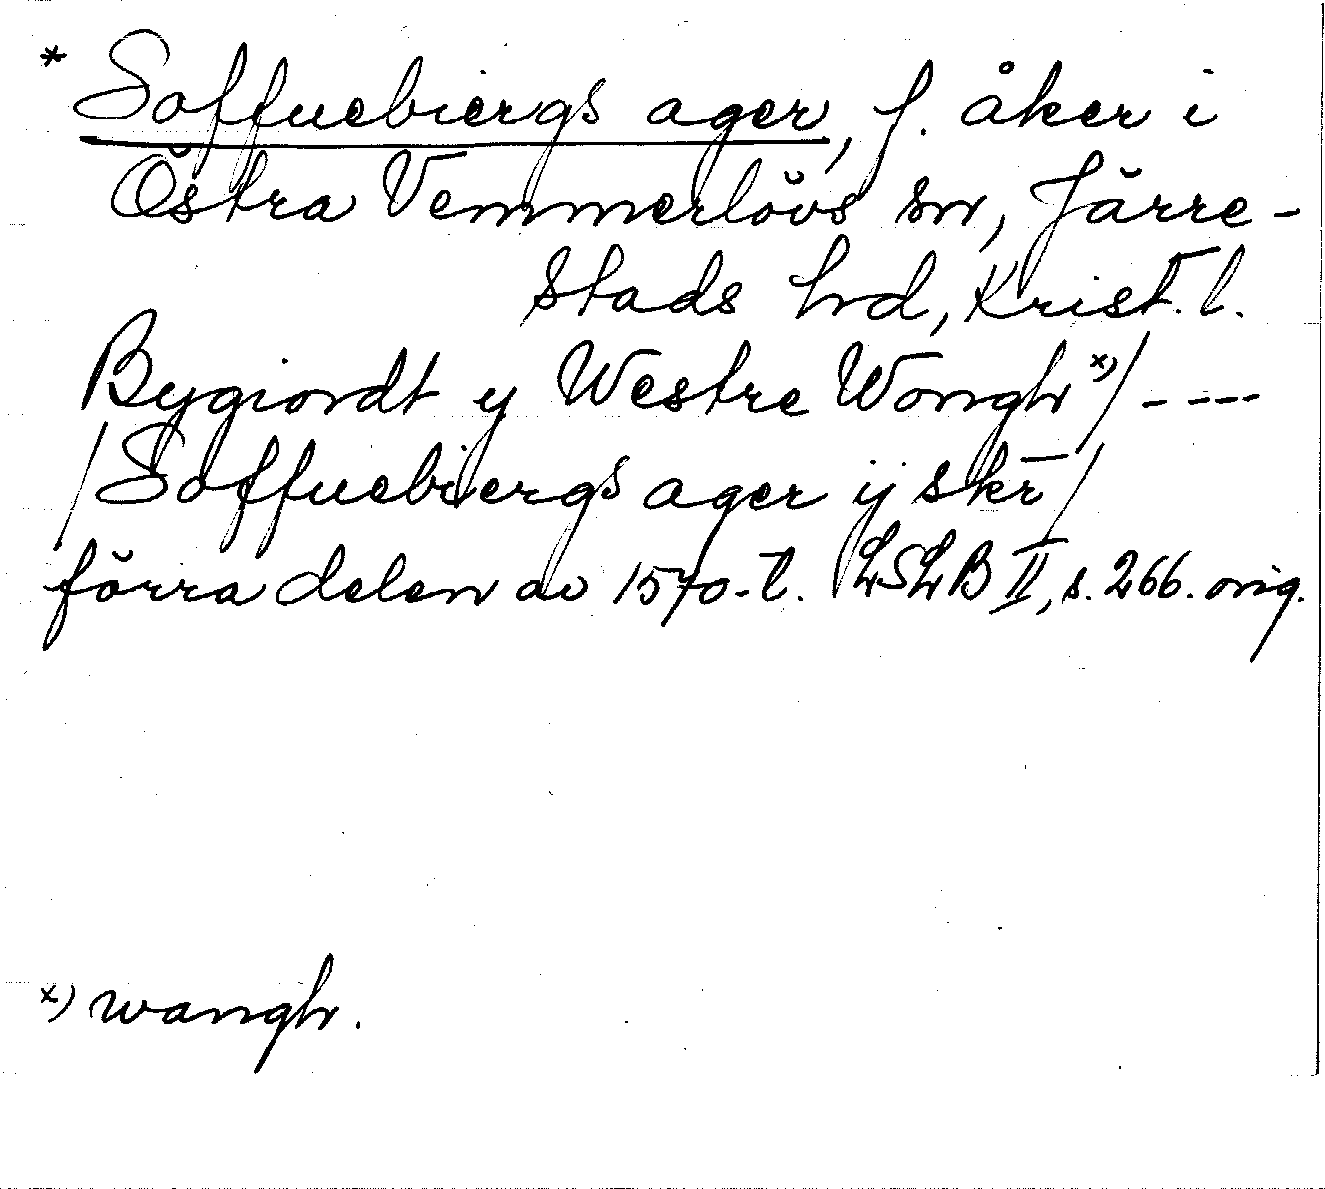 * Soffuebiergs ager, f. åker i
Östra Vemmerlövs sn, Järre-
stads hd, Krist. l.
Bygiordt y Westre Wongh x) / ----
/ Soffuebiergs ager ij skr̄ /
förra delen av 1570-t. LSLB II, s. 266. orig.
x) wangh.